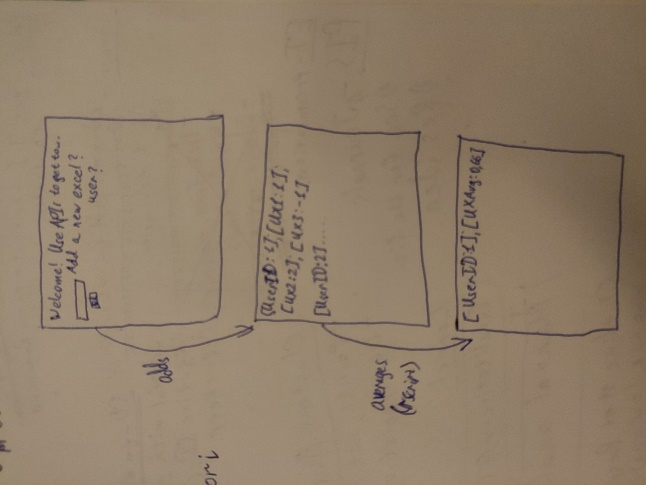 Welcome! Use APIs to get to...
Add a new excel?
user?
adds
[UserID: 1]; [UX1:1];
[UX2:2]; [UX3:-1]
[UserID:2]....
averages
[UserID:1]; [UXAvg:0,66]
ori